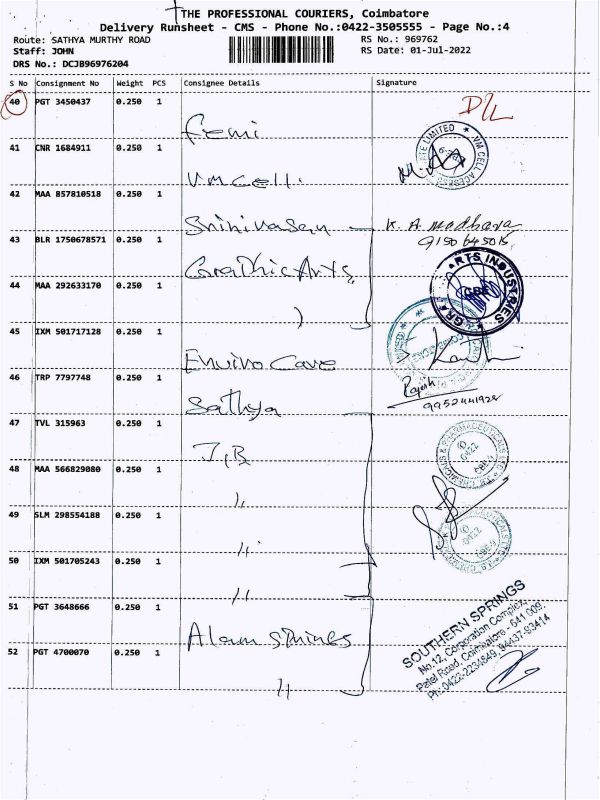 THE PROFESSIONAL COURIERS, Coimbatore
Delivery Runsheet - CMS - Phone No.:0422-3505555 - Page No.:4
Route: SATHYA MURTHY ROAD RS No.: 969762
Staff: JOHN RS Date: 01-Jul-2022
DRS No.: DCJB96976204
S No Consignment No Weight PCS Consignee Details Signature
40 PGT 3450437 0.250 1
Femi
41 CNR 1684911 0.250 1
VM Cell.
VM CELL
42 MAA 857810518 0.250 1
Srinivasan K. A. Madhava
43 BLR 1750678571 0.250 1
Graphic Arts
ARTS INDUSTRIES
44 MAA 292633170 0.250 1
45 IXM 501717128 0.250 1
Enviro Care
46 TRP 7797748 0.250 1
Rajesh
Sathya
47 TVL 315963 0.250 1
J,B
CHEMICALS & PHARMACEUTICALS LTD
48 MAA 566829080 0.250 1
"
49 SLM 298554188 0.250 1
"
50 IXM 501705243 0.250 1
"
51 PGT 3648666 0.250 1
Alam Springs
52 PGT 4700070 0.250 1
"
SOUTHERN SPRINGS
No.12, Corporation Complex,
Patel Road, Coimbatore - 641 009.
Ph: 0422-2234849, 94437-93414